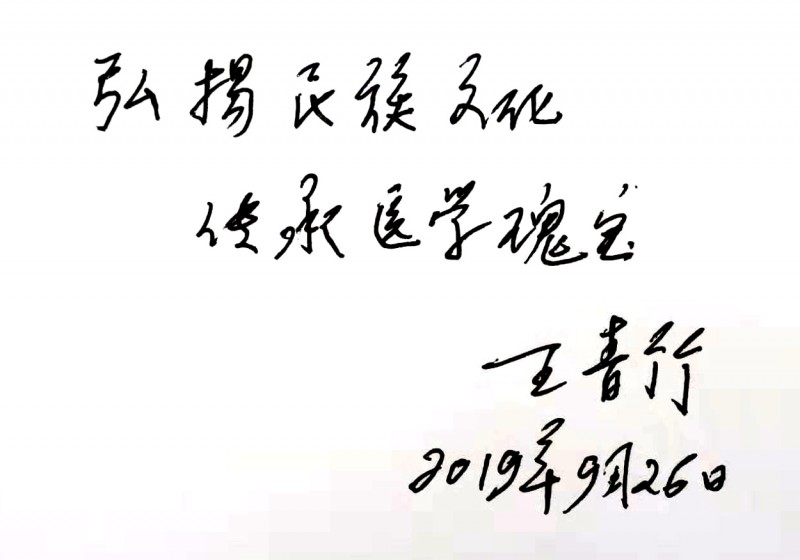 弘揚民族文化
传承医学瑰宝
王青竹
2019年9月26日